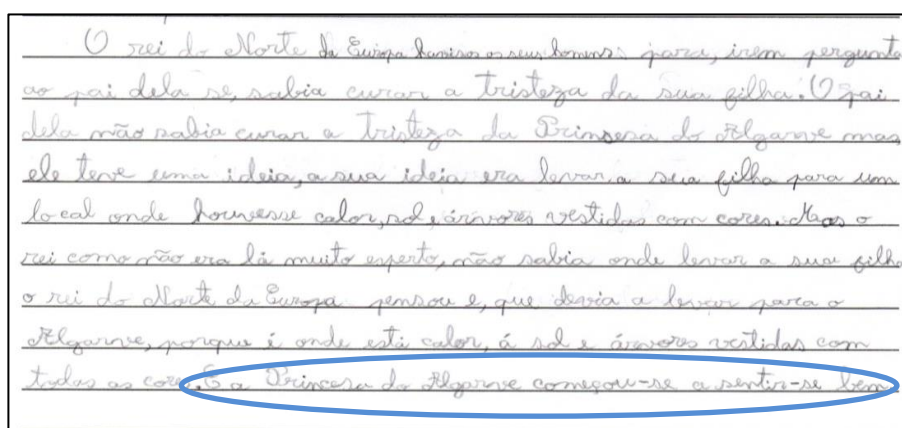 O rei do Norte da Europa os seus homens para, irem pergunta
ao pai dela se, sabia curar a tristeza da sua filha. O pai
dela não sabia curar a tristeza da Prinsesa do Algarve mas
ele teve uma ideia, a sua ideia era levar a sua filha para um
local onde houvesse calor, sol, árvores vestidas com cores. Mas o
rei como não era lá muito esperto, não sabia onde levar a sua filha
o rei do Norte da Europa pensou e, que devia a levar para o
Algarve, porque é onde está calor, á sol e árvores vestidas com
todas as cores. E a Princesa do Algarve começou-se a sentir-se bem